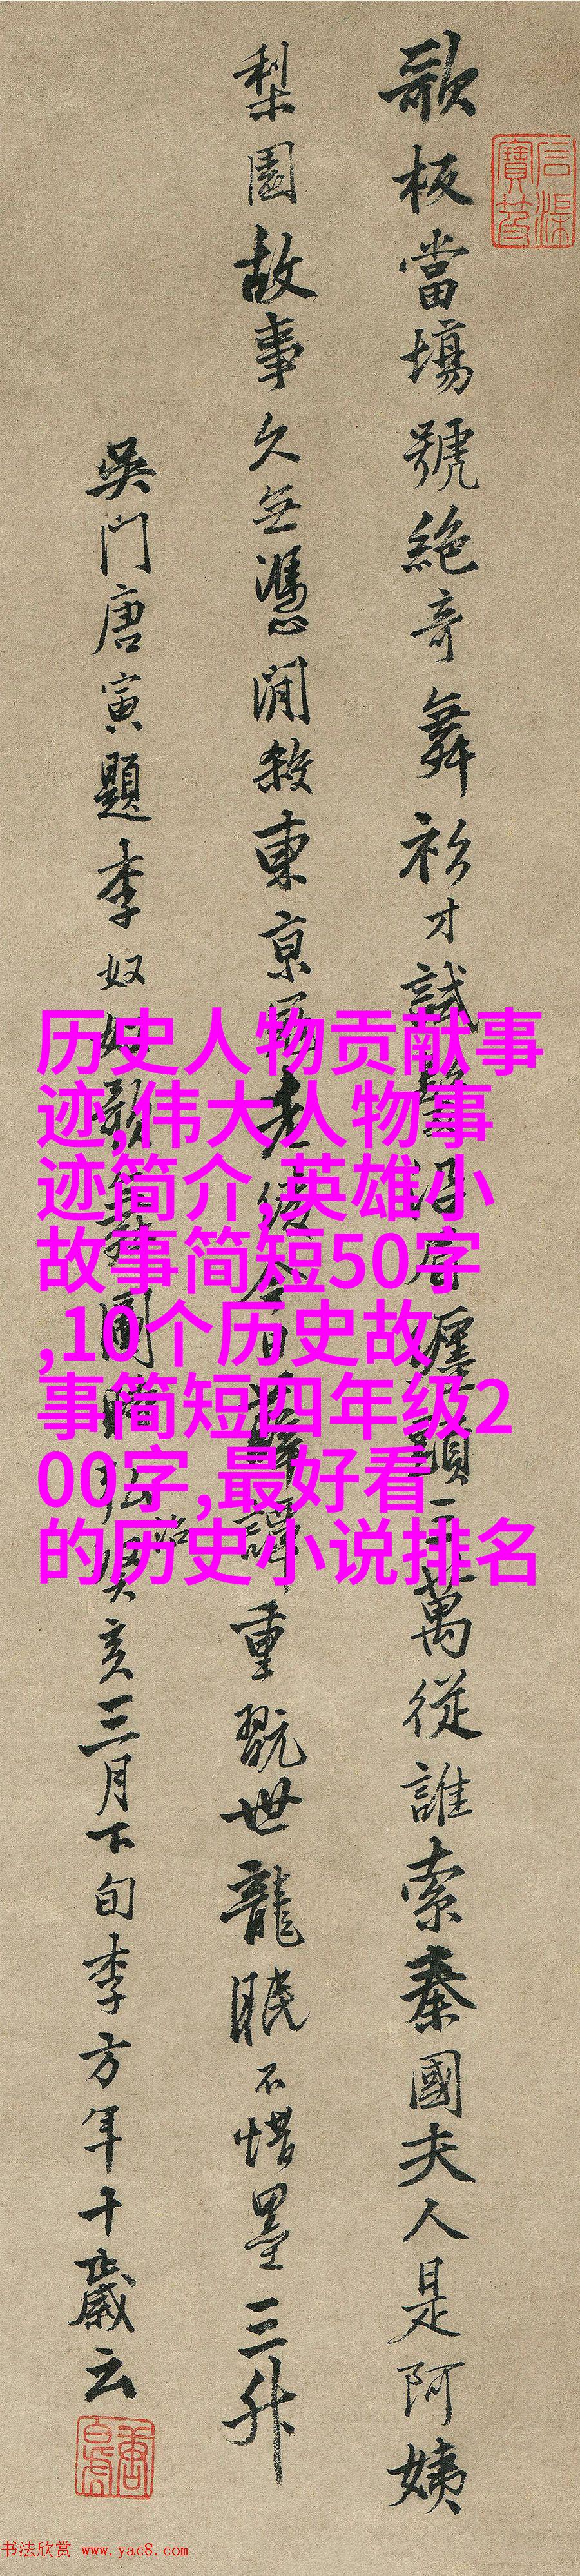 歌板當塲號絕奇舞衫才試頭三萬從誰索秦國夫人是阿姨
梨園故事久無憑閒殺東京老譚重翫世龍眠不惜墨三升
吳門唐寅題李奴奴歌舞圖時弘治癸亥三月下旬李方年十歲云
历史人物贡献事
迹,伟大人物事
迹简介,英雄小
故事简短50字
,10个历史故
事简短四年级2
00字,最好看
的历史小说排名
书法欣赏 www.yac8.com